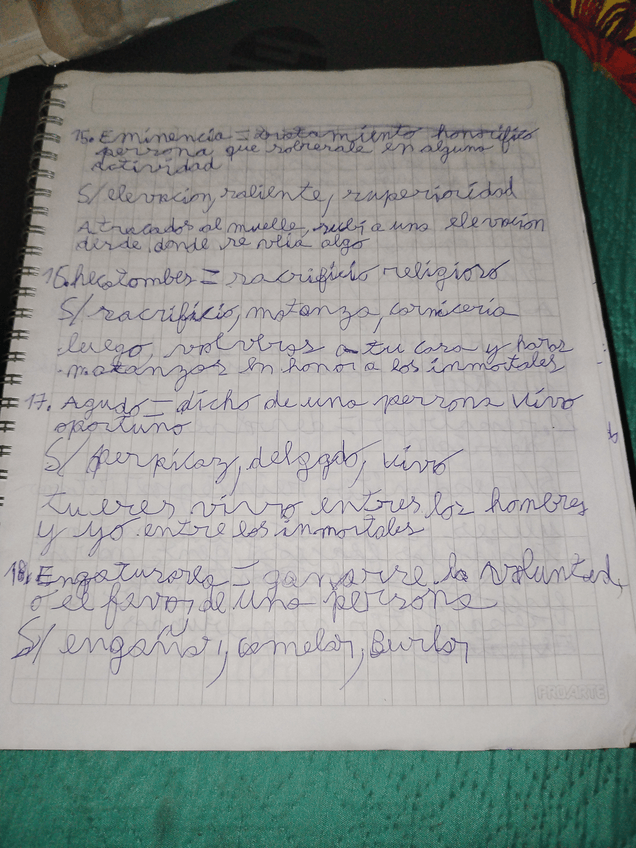 15. Eminencia = tratamiento honorífico
persona que sobresale en alguna
actividad
S/ elevacion, saliente, superioridad
Atracados al muelle, subí a una elevación
desde donde se veía algo
16. hecatombes = sacrificio religioso
S/ sacrificio, matanza, carniceria
luego, volveras a tu casa y haras
matanzas en honor a los inmortales
17. Agudo = dicho de una persona vivo
oportuno
S/ perpicaz, delgado, vivo
tu eres vivo entres los hombres
y yo entre los inmortales
18. = ganarse la voluntad,
o el favor de una persona
S/ engañar, camelar, Burlar
PROARTE